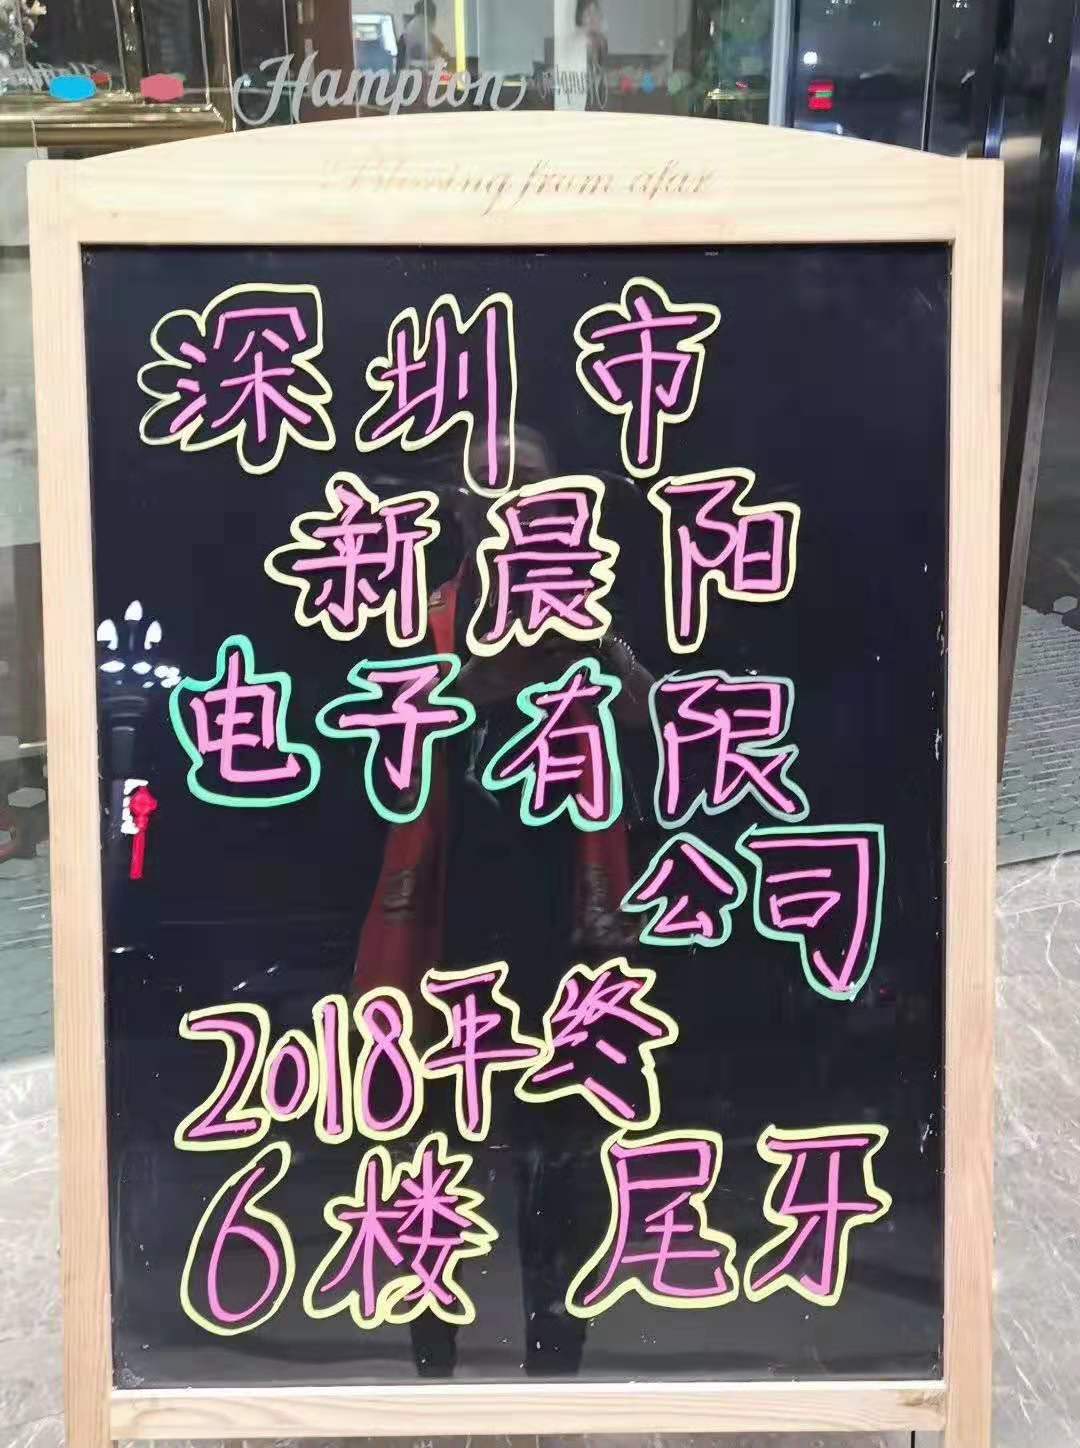 Hampton
Blessing from afar
深圳市
新晨阳
电子有限
公司
2018年终
6楼 尾牙